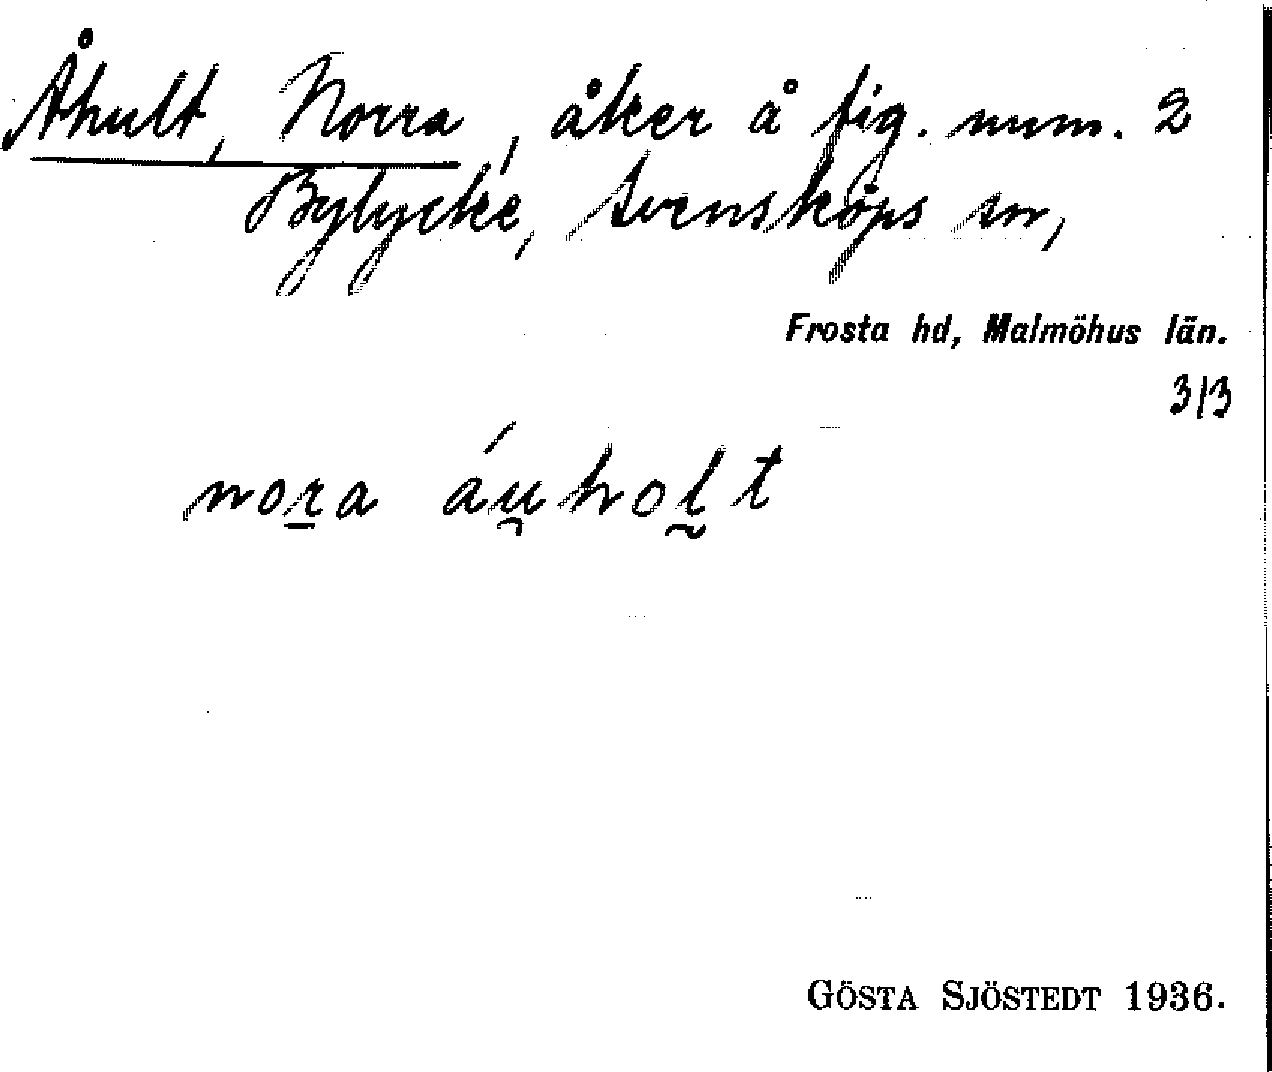 Åhult, Norra, åker å fig. num. 2
Bylycke, Svensköps sn,
Frosta hd, Malmöhus län.
3/3
nora áu̯holt
GÖSTA SJÖSTEDT 1936.